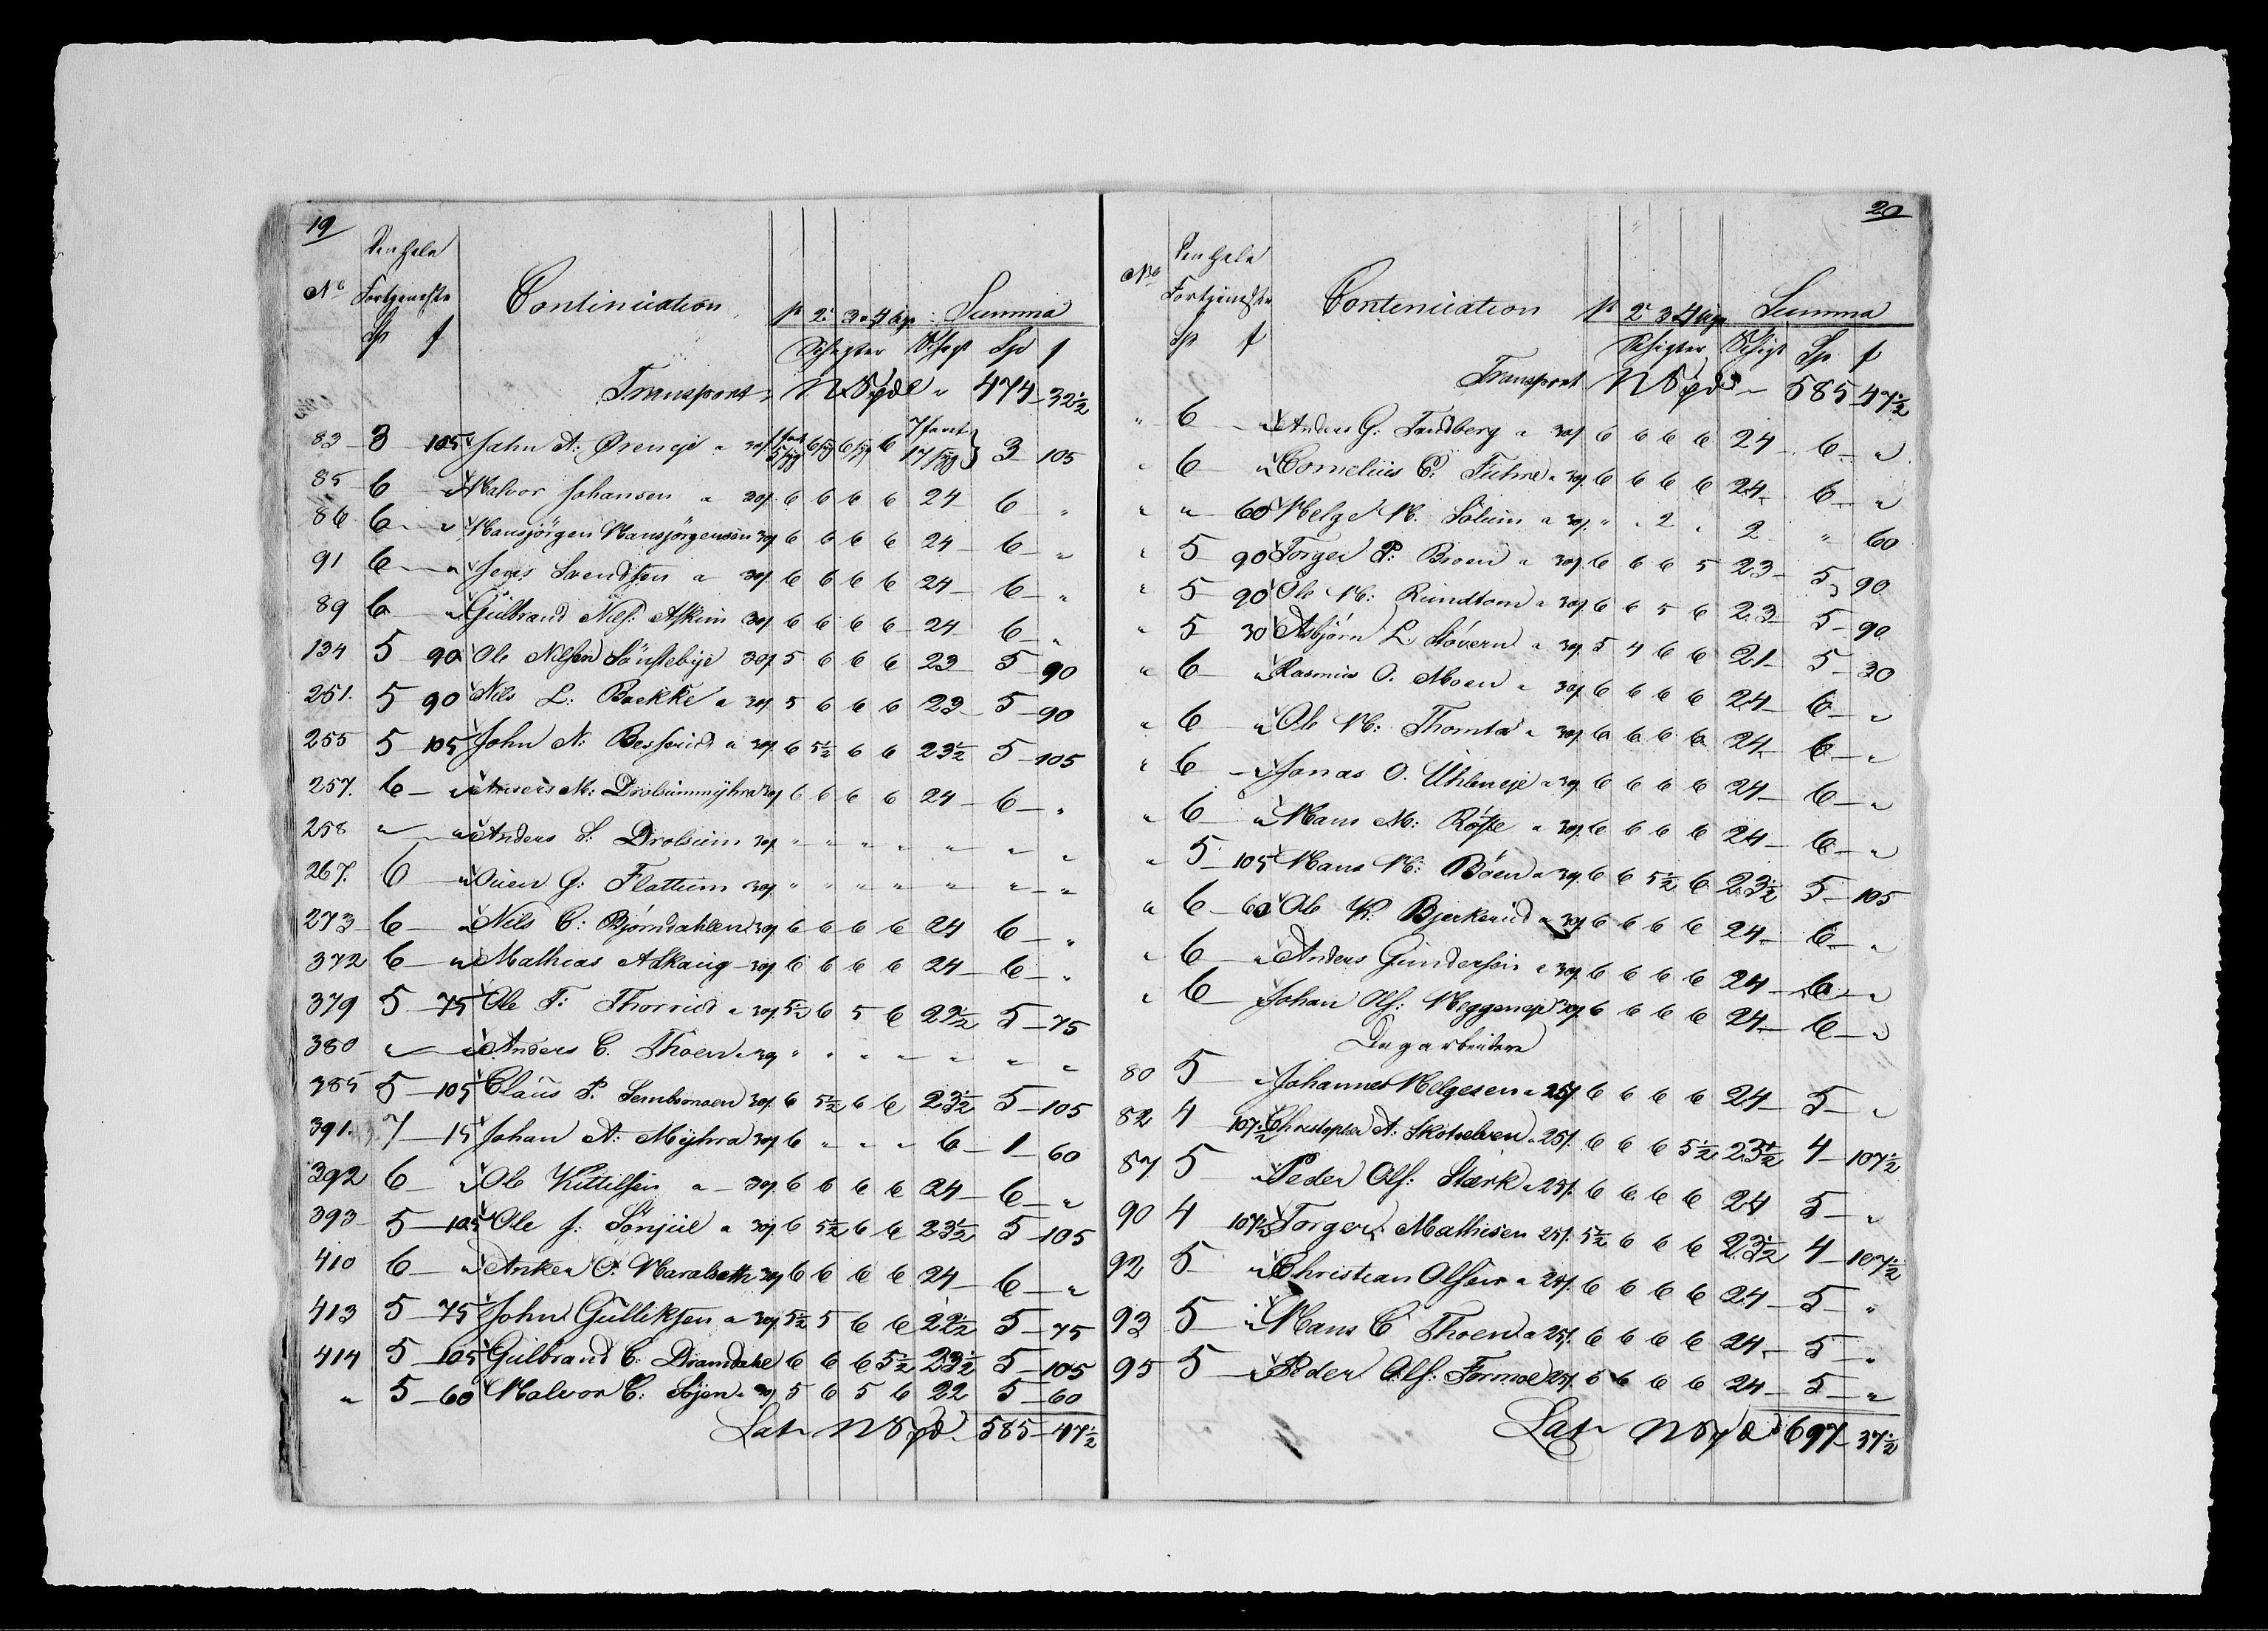 19
Den hele
No Fortjeneste Continuation 1ste 2n 3die 4 Uge Summa
Sp ſ Schigter Schigt Spd ſ
Transport, N. Spdl " 474 – 32½
83 – 3 – 105 John A: Øreneje a 30ſ 6 3 – 105
85 – 6 – " Halvor Johansen a 30ſ 6 6 6 6 24 – 6 – "
86 6 – " Hansjörgen Hansjörgensen 30ſ 6 6 6 6 24 – 6 – "
91 6 – " Jens Svendsen a 30ſ 6 6 6 6 24 – 6 – "
89 6 – " Gulbrand Nils: Askim 30ſ 6 6 6 6 24 6 – "
134 5 – 90 Ole Nilsen Sönstebye 30ſ 5 6 6 6 23 – 5 – 90
251. 5 90 Nils L: Baekke a 30ſ 5 6 6 6 23 – 5 – 90
255 5 – 105 John N: Besserud a 30ſ 6 5½ 6 6 23½ 5 – 105
257. 6 – " M: Drolsummyhra 30ſ 6 6 6 6 24 – 6 – "
258 " – " Anders S: Drolsum 30ſ " " " " " " "
267. 6 – " G: Flattum 30ſ " " " " " " – "
273 – 6 – " Nils C: Bjørndahlen 30ſ 6 6 6 6 24 6 – "
372 6 – " Mathias Askaug – 30ſ 6 6 6 6 24 – 6 – "
379 5 – 75 Ole T: Thorrud a 30ſ 5½ 6 5 6 22½ 5 – 75
380 " – " Anders C. Thoen a 30ſ " " " " " " "
385 5 – 105 Claus P. 30ſ 6 5½ 6 6 23½ 5 – 105
391. 7 – 15 Johan A: Myhra 30ſ 6 " " " 6 – 1 – 60
392 6 – " Ole Kittilsen a – 30ſ 6 6 6 6 24 – 6 – "
393 – 5 – 105 Ole J. Sönjul a 30ſ 6 5½ 6 6 23½ 5 – 105
410 6 – " Anken O. Haralseth 30ſ 6 6 6 6 24 – 6 – "
413 5 – 75 John Gulliksen a 30ſ 5½ 5 6 6 22½ 5 – 75
414 5 – 105 Gulbrand C: Dramdahl 6 6 6 5½ 23½ 5 – 105
" 5 – 60 Halvor C: a 30ſ 5 6 5 6 22 5 – 60
Lat N Spd. 585 – 47½
20
Den hele
No Fortjeneste Contenuation 1ste 2n 3 4 Uge Summa
Sp ſ Schigter Schigt Sp ſ
Transport N Spd " 585 – 47½
" 6 – " Anders G: Sandberg a 30ſ 6 6 6 6 24 – 6 – "
" 6 – " Cornelius C. Fuhre a 30ſ 6 6 6 6 24 – 6 – "
" " 60 Helge H. Solum a 30ſ. " " 2 " 2 " 60
" 5 – 90 Torger P: Broen a 30ſ 6 6 6 5 23 – 5 – 90
" 5 – 90 Ole H: Rundtom a 30ſ 6 6 5 6 23 – 5 – 90
" 5 – 30 Asbjörn L. Stövern a 30ſ 5 4 6 6 21 – 5 – 30
" 6 – " Rasmus O. Moen a 30ſ 6 6 6 6 24 – 6 – "
" 6 – " Ole H: Thomta a 30ſ 6 6 6 6 24 – 6 – "
" 6 – " Jonas O. Uhleneje a 30ſ 6 6 6 6 24 – 6 – "
" 6 – " Hans M: Röste a 30ſ 6 6 6 6 24 – 6 – "
" 5 – 105 Hans H: Böen a 30ſ 6 6 5½ 6 23½ 5 – 105
" 6 – 60 Ole K: Bjerkerud a 30ſ 6 6 6 6 24 – 6 – "
" 6 – " Anders Gundersen a 30ſ 6 6 6 6 24 – 6 – "
" 6 – " Johan Ols: Heggeneje 30ſ 6 6 6 6 24 – 6 – "
Dagarbeidere
80 5 – " Johannes Helgesen a 25ſ 6 6 6 6 24 – 5 – "
82 4 107½ Christopher A: Skotselven a 25ſ. 6 6 6 5½ 23½ 4 – 107½
87 5 – " Peder Ols: Stærk a 25ſ 6 6 6 6 24 5 – "
90 4 107½ Torger Mathisen 25ſ. 5½ 6 6 6 23½ 4 – 107½
92 5 – " Christian Olsen a 25ſ. 6 6 6 6 24 – 5 – "
93 5 – " Hans C Thoen a 25ſ. 6 6 6 6 24 – 5 – "
95 5 – " Peder Ols: Formoe 25ſ. 6 6 6 6 24 – 5 – "
Lat N Spd 697 – 37½